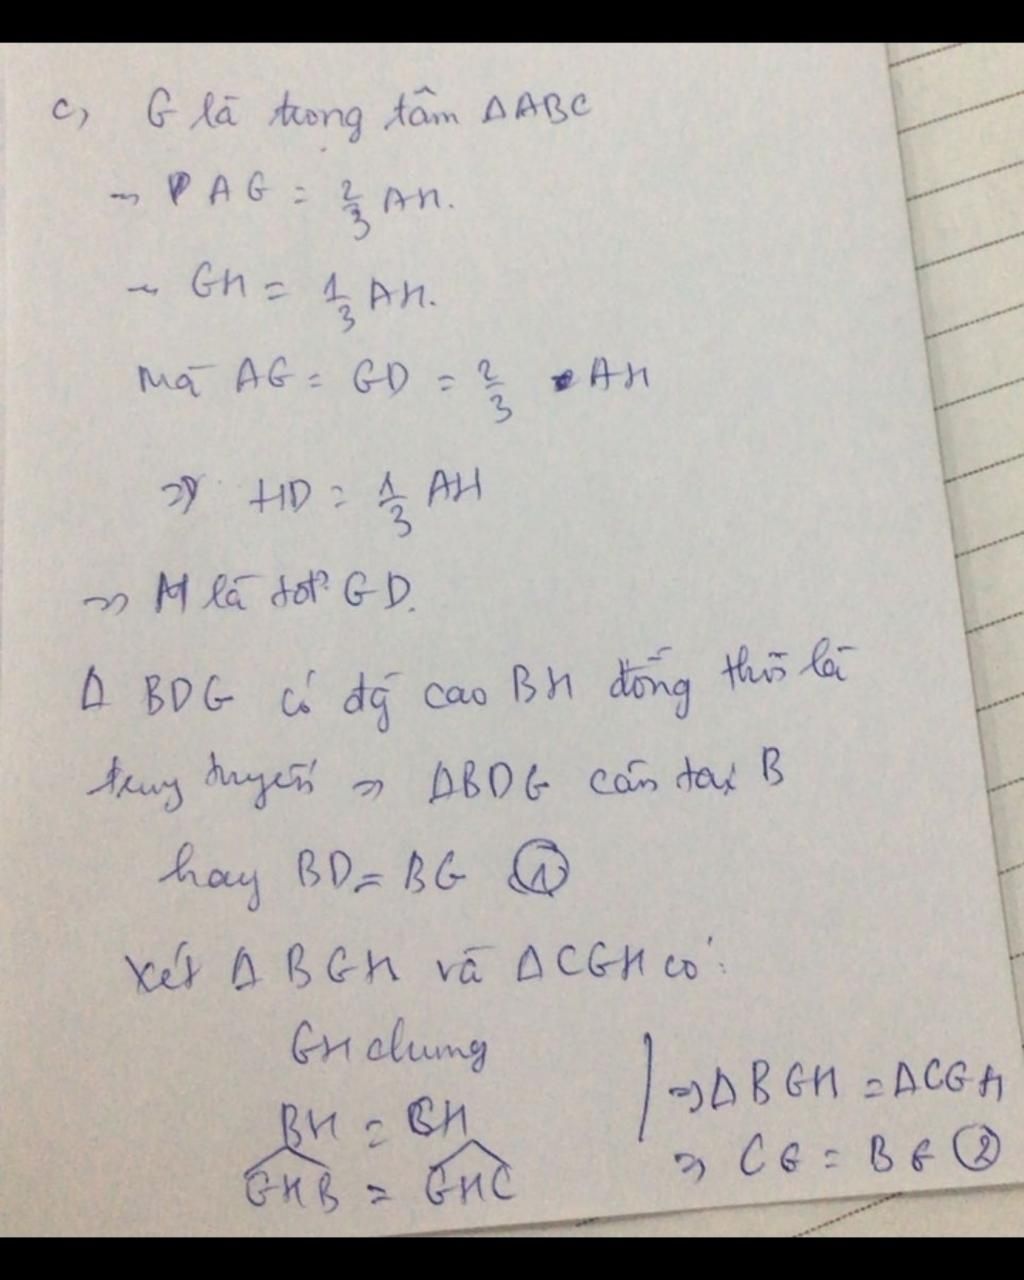 c, G là trong tâm ΔABC
→ AG = 2/3 AH.
→ GH = 1/3 AH.
Mà AG = GD = 2/3 AH
⇒ HD = 1/3 AH
⇒ H là GD.
Δ BDG có cao BH đồng thời là
trung tuyến ⇒ ΔBDG cân tại B
hay BD = BG ①
Xét Δ BGH và ΔCGH có:
GH chung
BH = CH
GHB = GHC
⇒ Δ BGH = ΔCGH
⇒ CG = BG ②